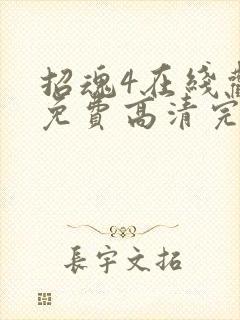 招魂4在线
免费高清完
長宇文拓